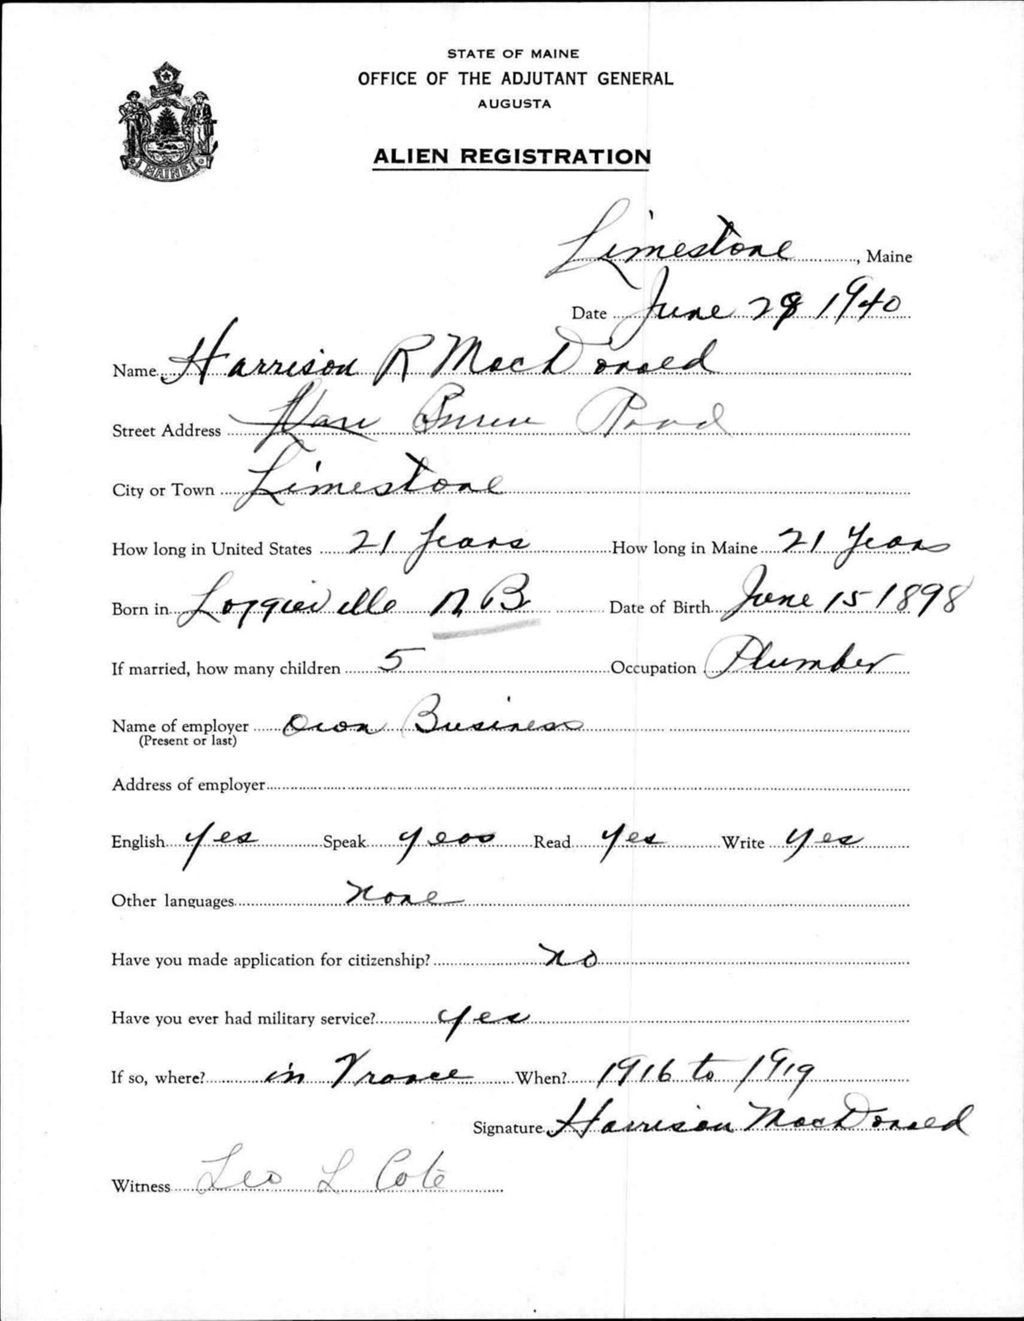 STATE OF MAINE
OFFICE OF THE ADJUTANT GENERAL
AUGUSTA
MAINE
ALIEN REGISTRATION
Limestone, Maine
Date June 29 1940
Name Harrison R MacDonald
Street Address Van Buren Road
City or Town Limestone
How long in United States 21 Years How long in Maine 21 Years
Born in Loggieville N B Date of Birth June 15 1898
If married, how many children 5 Occupation Plumber
Name of employer Own Business
(Present or last)
Address of employer
English Yes Speak Yeos Read Yes Write Yes
Other languages None
Have you made application for citizenship? No
Have you ever had military service? Yes
If so, where? in France When? 1916 to 1919
Signature Harrison MacDonald
Witness Leo L Cote